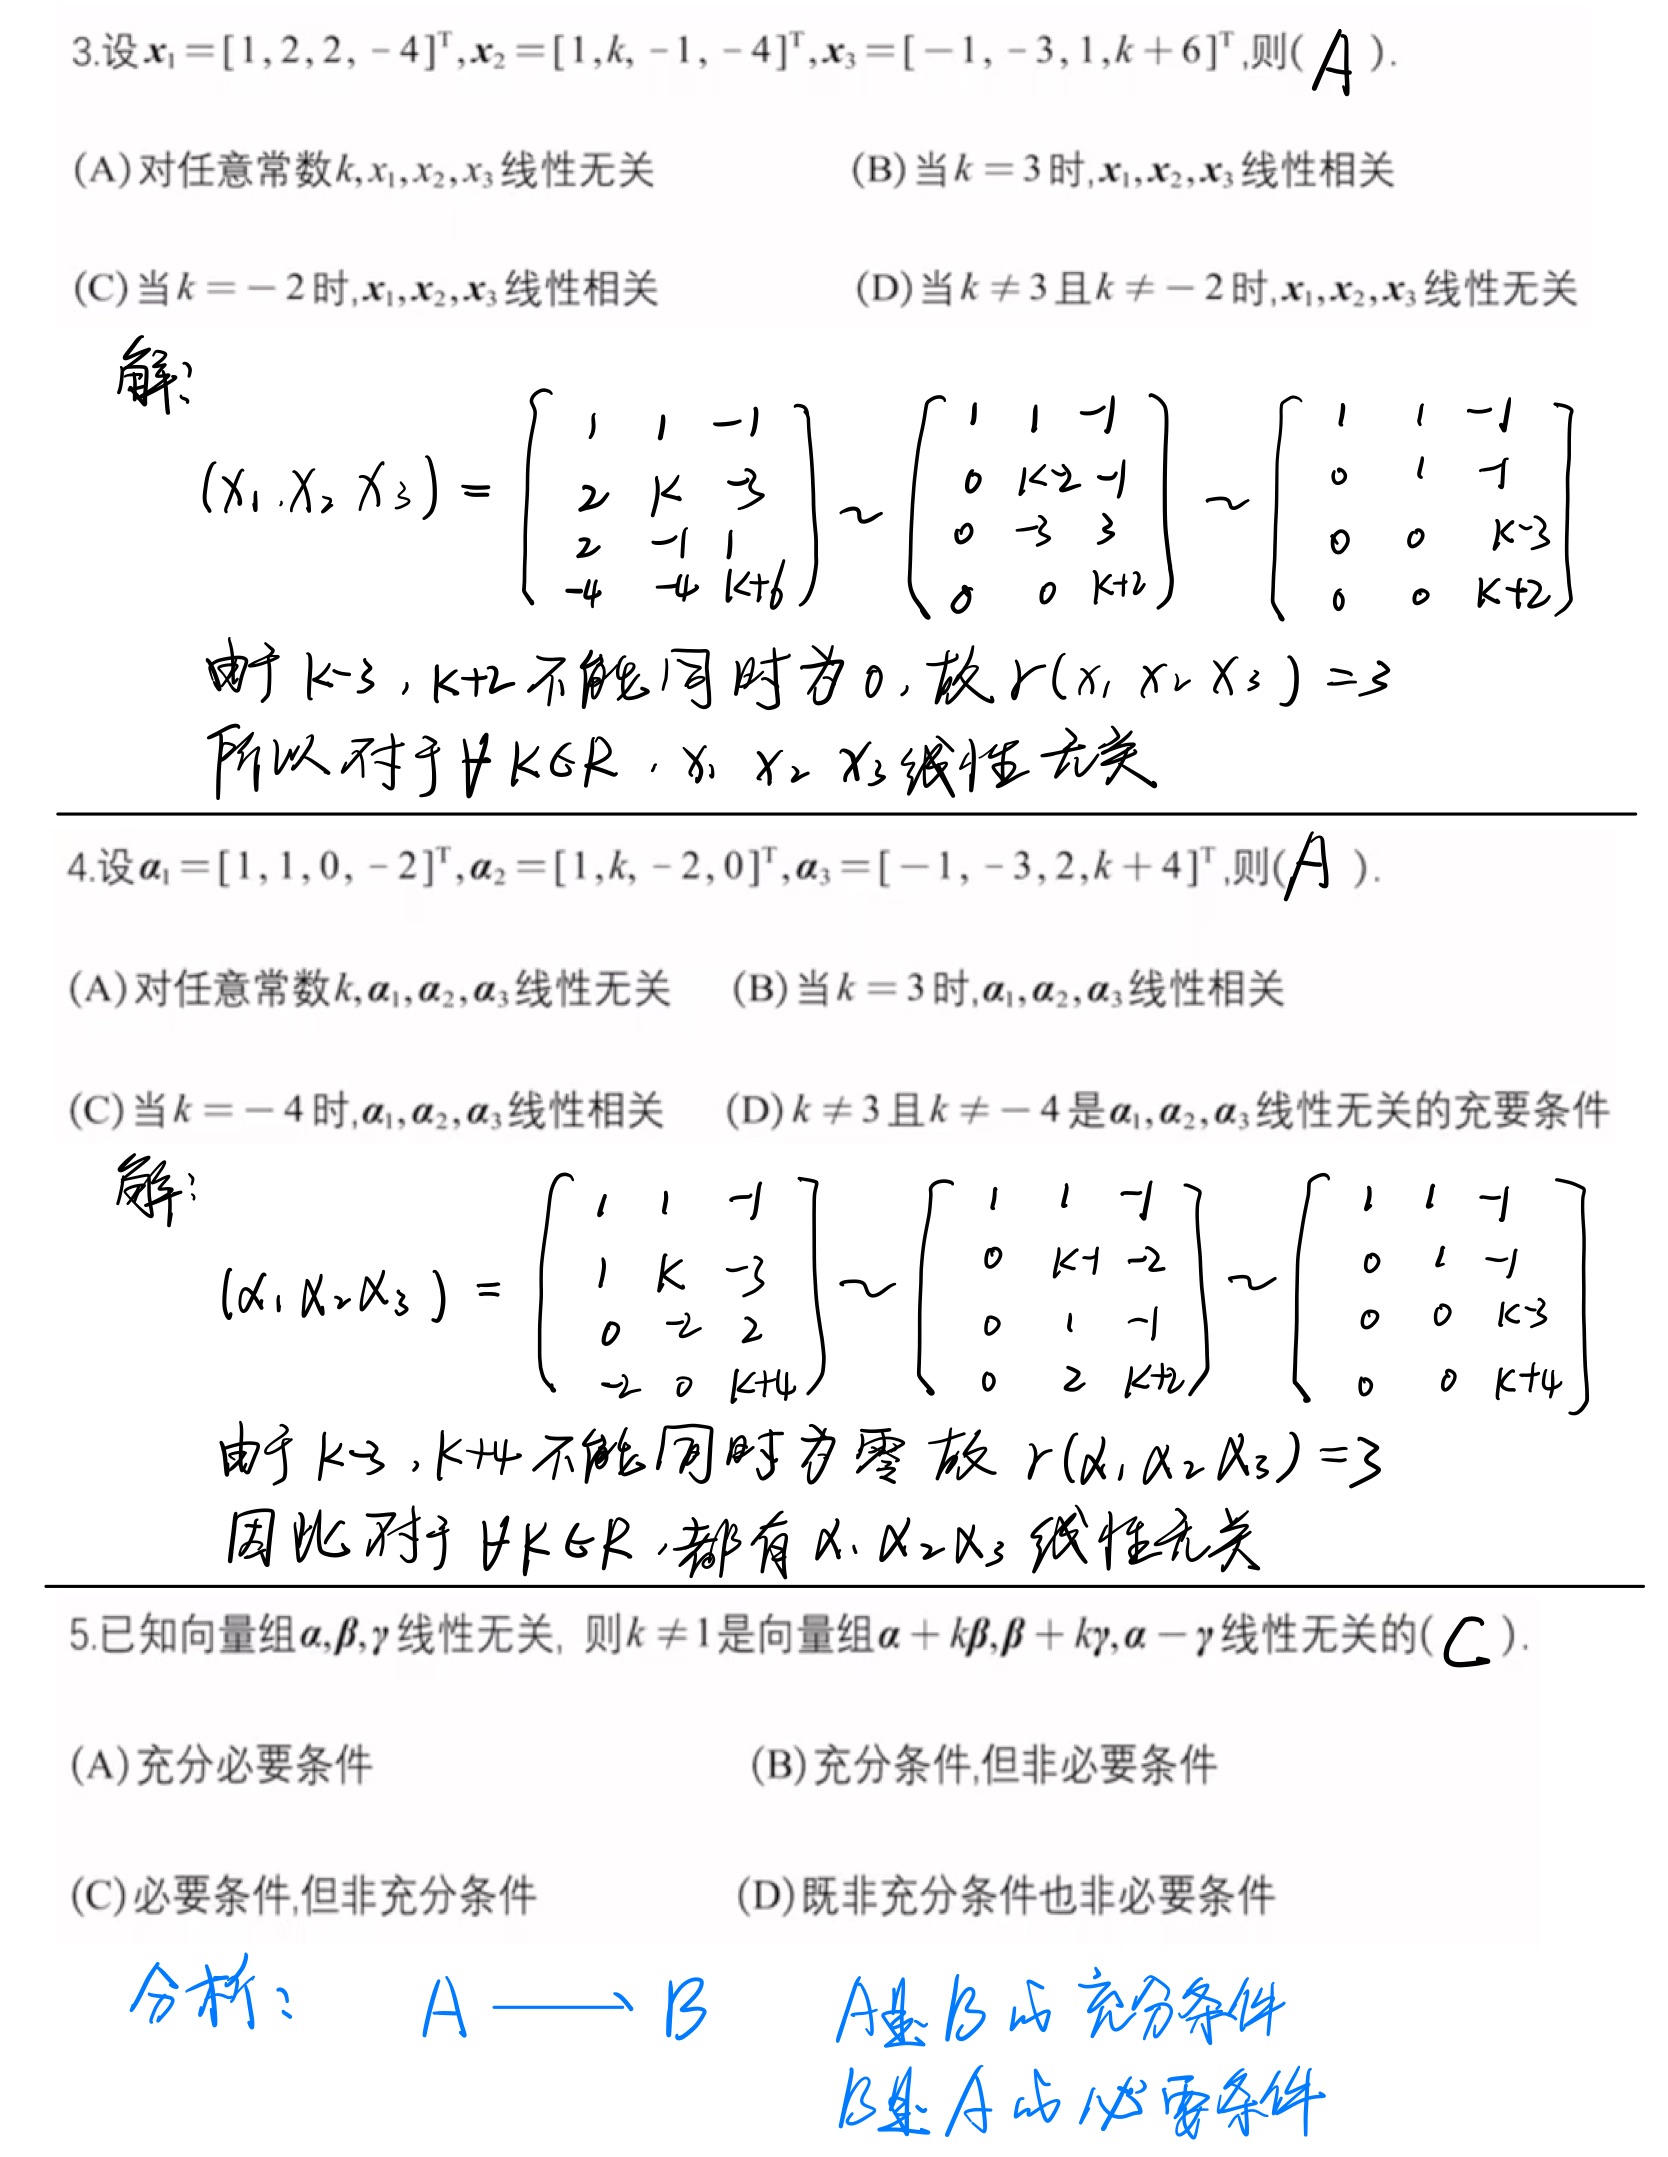 3.设x₁=[1,2,2,-4]ᵀ,x₂=[1,k,-1,-4]ᵀ,x₃=[-1,-3,1,k+6]ᵀ,则( A ).
(A)对任意常数k,x₁,x₂,x₃线性无关 (B)当k=3时,x₁,x₂,x₃线性相关
(C)当k=-2时,x₁,x₂,x₃线性相关 (D)当k≠3且k≠-2时,x₁,x₂,x₃线性无关
解:
1 1 -1 1 1 -1 1 1 -1
2 k -3 0 k-2 -1 0 1 -1
(x₁,x₂ x₃) = ~ ~
2 -1 1 0 -3 3 0 0 k-3
-4 -4 k+6 0 0 k+2 0 0 k+2
由于 k-3, k+2 不能同时为0,故 r(x₁ x₂ x₃)=3
所以对于∀k∈R, x₁ x₂ x₃线性无关
4.设α₁=[1,1,0,-2]ᵀ,α₂=[1,k,-2,0]ᵀ,α₃=[-1,-3,2,k+4]ᵀ,则( A ).
(A)对任意常数k,α₁,α₂,α₃线性无关 (B)当k=3时,α₁,α₂,α₃线性相关
(C)当k=-4时,α₁,α₂,α₃线性相关 (D)k≠3且k≠-4是α₁,α₂,α₃线性无关的充要条件
解:
1 1 -1 1 1 -1 1 1 -1
1 k -3 0 k-1 -2 0 1 -1
(α₁ α₂ α₃) = ~ ~
0 -2 2 0 1 -1 0 0 k-3
-2 0 k+4 0 2 k+2 0 0 k+4
由于 k-3, k+4 不能同时为零 故 r(α₁ α₂ α₃)=3
因此对于∀k∈R,都有α₁ α₂ α₃ 线性无关
5.已知向量组α,β,γ线性无关, 则k≠1是向量组α+kβ,β+kγ,α-γ线性无关的( C ).
(A)充分必要条件 (B)充分条件,但非必要条件
(C)必要条件,但非充分条件 (D)既非充分条件也非必要条件
分析: A → B A是B的充分条件
B是A的必要条件